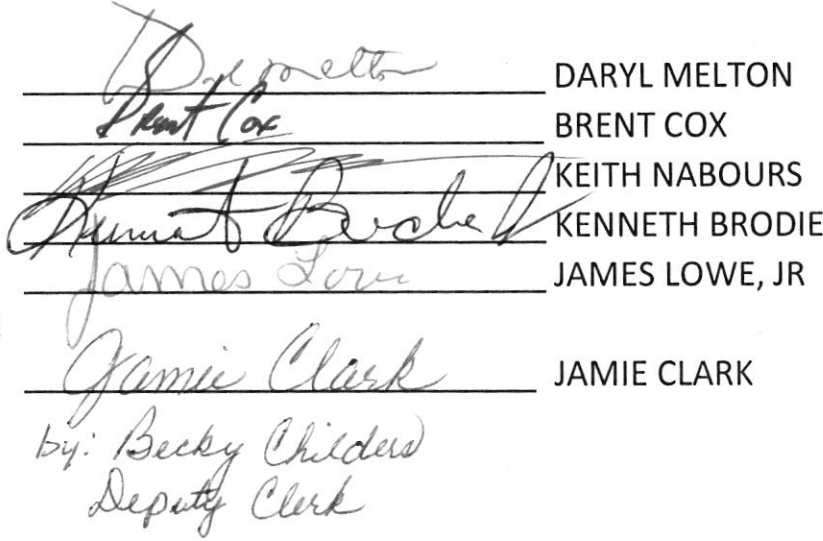 Daryl Melton DARYL MELTON
Brent Cox BRENT COX
KEITH NABOURS
Kenneth KENNETH BRODIE
James Lowe JAMES LOWE, JR
Jamie Clark JAMIE CLARK
by: Becky Childers
Deputy Clerk